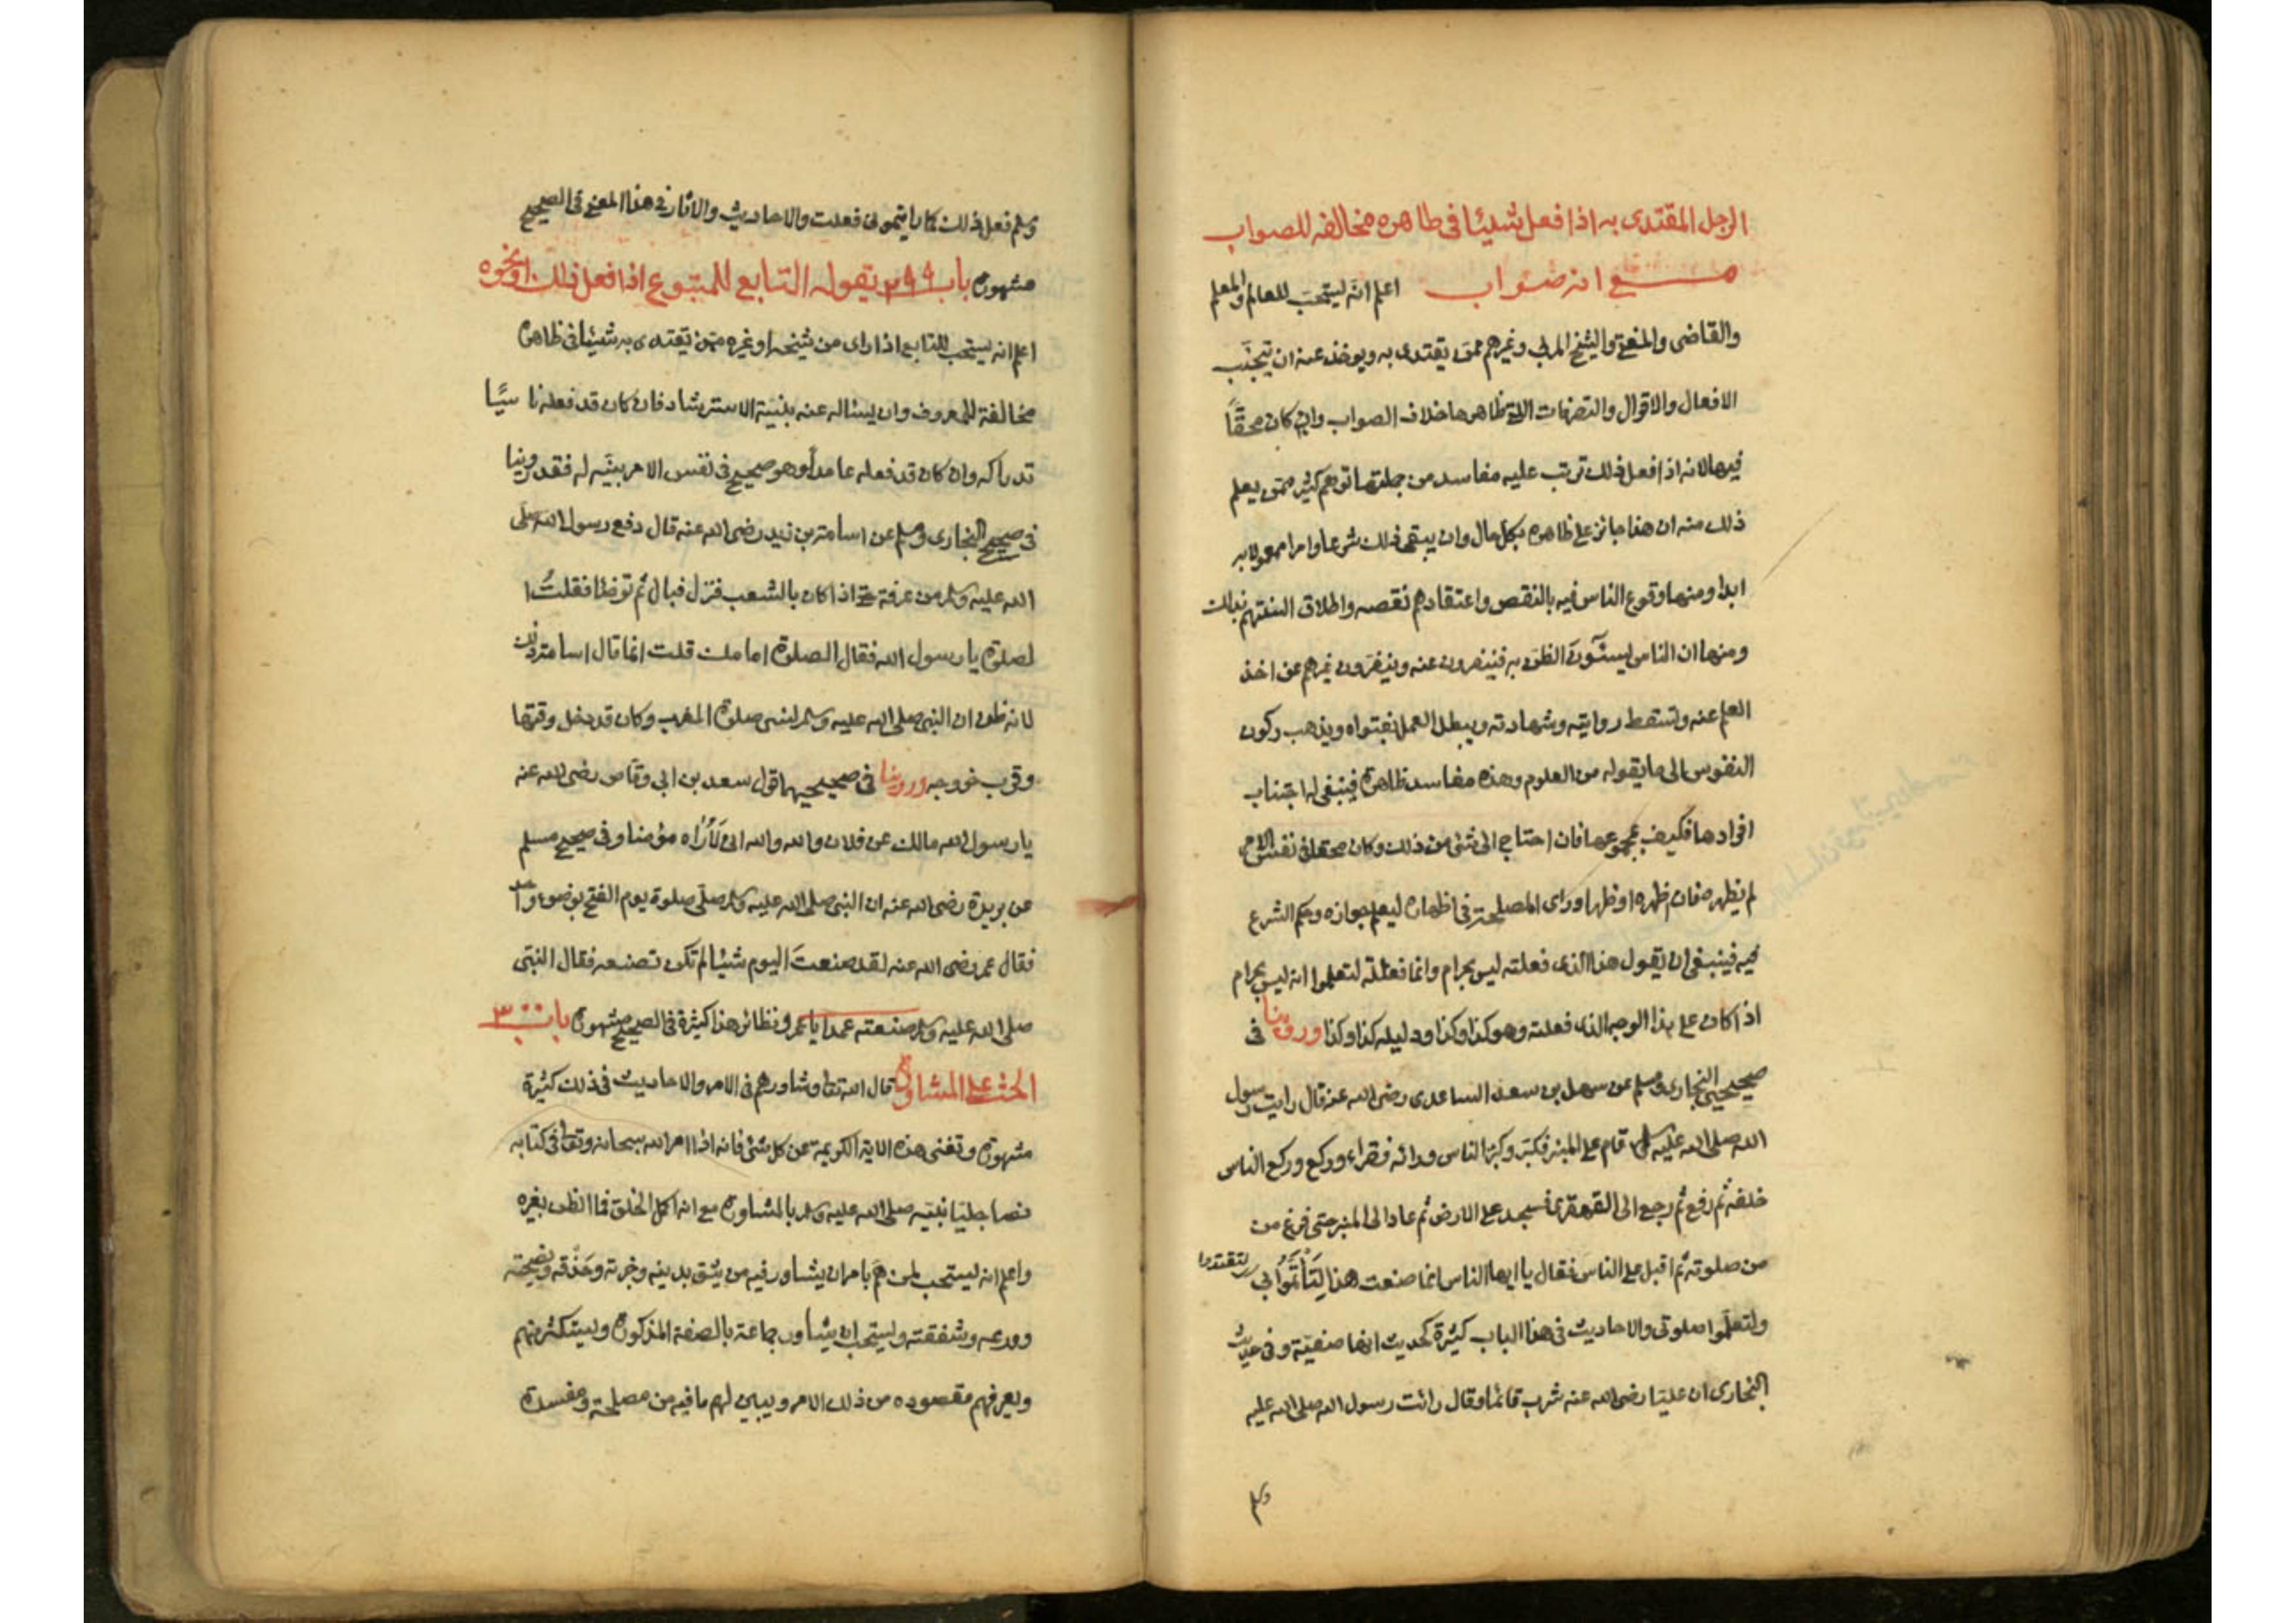 الرجل المقتدى به اذا فعل شيئا في ظاهره مخالفه للصواب
مع انه صواب اعلم انه يستحب للعالم والمعلم
والقاضى والمفتى والشيخ المربى وغيرهم ممن يقتدى به ويوخذ عنه ان يتجنب
الافعال والاقوال والتصرفات التى ظاهرها خلاف الصواب وان كان محقًّا
فيها لانه اذا فعل ذلك ترتب عليه مفاسد من جملتها توهم كثير ممن يعلم
ذلك منه ان هذا جائز على ظاهره بكل حال وان يبقى ذلك شرعا وامرا معمولا به
ابدا ومنها وقوع الناس فيه بالنقص واعتقادهم نقصه واطلاق السنتهم بذلك
ومنها ان الناس يسئون الظن به فينفرون عنه وينفرون غيرهم عن اخذ
العلم عنه وتسقط روايته وشهادته ويبطل العمل بفتواه ويذهب ركون
النفوس الى ما يقوله من العلوم وهذه مفاسد ظاهرة فينبغى له اجتناب
افرادها فكيف بمجموعها فان احتاج الى شئ من ذلك وكان محقا فى نفس الامر
لم يظهره فان ظهره او ظهر او راى المصلحة فى اظهاره ليعلم جوازه وحكم الشرع
فيه فينبغى ان يقول هذا الذى فعلته ليس بحرام وانما فعلته لتعلموا انه ليس بحرام
اذا كان على هذا الوجه الذى فعلته وهو كذا وكذا ودليله كذا وكذا وروينا فى
صحيحى البخارى ومسلم عن سهل بن سعد الساعدى رضى الله عنه قال رايت رسول
الله صلى الله عليه وسلم قام على المنبر فكبّر وكبّر الناس ورائه فقراء وركع وركع الناس
خلفه ثم رفع ثم رجع الى القهقرى فسجد على الارض ثم عاد الى المنبر حتى فرغ من
من صلوته ثم اقبل على الناس فقال يا ايها الناس انما صنعت هذا لِتَأتَمُّوا بى لتقتدوا
ولتعلّموا صلوتى والاحاديث فى هذا الباب كثيرة كحديث انها صفيّة وفى حديث
البخارى ان عليّا رضى الله عنه شرب قائما وقال رائت رسول الله صلى الله عليه
وسلم
وسلم فعل ذلك كما رايتمونى فعلت والاحاديث والاثار فى هذا المعنى فى الصحيح
مشهورة باب ٢٩٩ يقوله التابع للمتبوع اذا فعل ذلك او نحوه
اعلم انه يستحب للتابع اذا راى من شيخه او غيره ممن يقتدى به شيئا فى ظاهره
مخالفة للمعروف وان يسئاله عنه بنيّة الاسترشاد فان كان قد فعله ناسيًا
تداركه وان كان قد فعله عامداً وهو صحيح فى نفس الامر بيّنه له فقد روينا
فى صحيح البخارى ومسلم عن اسامة بن زيد رضى الله عنه قال دفع رسول الله صلى
الله عليه وسلم من عرفة حتى اذا كان بالشعب فنزل فبال ثم توضا فقلت ا
لصلوة يا رسول الله فقال الصلوة امامك قلت انما قال اسامة ذلك
لانه ظن ان النبى صلى الله عليه وسلم نسى صلوة المغرب وكان قد دخل وقتها
وقرب خروجه وروينا فى صحيحيهما قول سعد بن ابى وقّاص رضى الله عنه
يا رسول الله مالك عن فلان والله والله انى لَأَرَاه مؤمنا وفى صحيح مسلم
عن بريدة رضى الله عنه ان النبى صلى الله عليه وسلم صلّى صلوة يوم الفتح بوضوء واحد
فقال عمر رضى الله عنه لقد صنعتَ اليوم شيئا لم تكن تصنعه فقال النبى
صلى الله عليه وسلم صنعته عمدا يا عمر ونظائر هذا كثيرة فى الصحيح مشهورة باب ٣٠٠
الحث على المشاورة قال الله تعا وشاورهم فى الامر والاحاديث فى ذلك كثيرة
مشهورة وتغنى هذه الاية الكريمة عن كل شئ فانه اذا امر الله سبحانه وتعا فى كتابه
نصا جليّا نبيّه صلى الله عليه وسلم بالمشاورة مع انه اكمل الخلق فما الظن بغيره
واعلم انه يستحب لمن همّ بامر ان يشاور فيه من يثق بدينه وخبرته وحَذْقه ونصيحته
وورعه وشفقته ويستحب ان يشاور جماعة بالصفة المذكورة ويستكثر منهم
ويعرفهم مقصوده من ذلك الامر ويبين لهم ما فيه من مصلحة ومفسدة